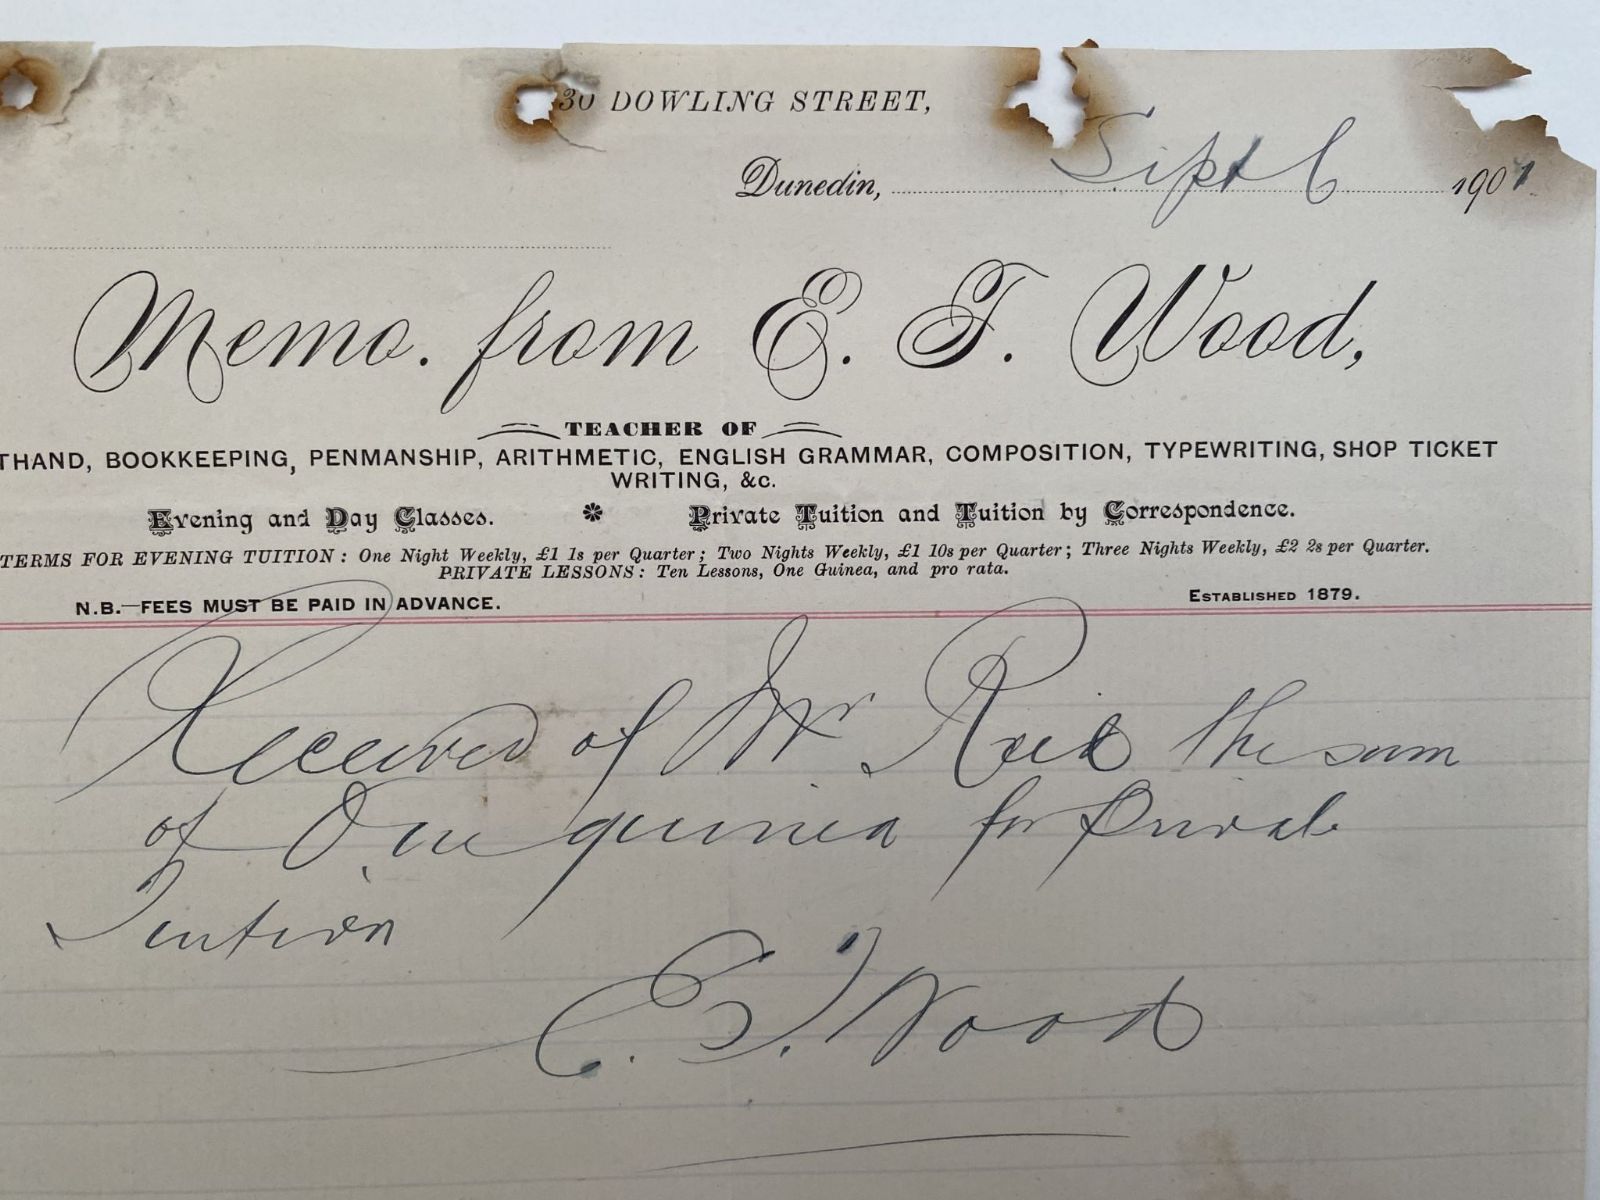 30 DOWLING STREET,
Dunedin, Sept 6 1901
Memo. from E. F. Wood,
TEACHER OF
THAND, BOOKKEEPING, PENMANSHIP, ARITHMETIC, ENGLISH GRAMMAR, COMPOSITION, TYPEWRITING, SHOP TICKET
WRITING, &c.
Evening and Day Classes. * Private Tuition and Tuition by Correspondence.
TERMS FOR EVENING TUITION: One Night Weekly, £1 1s per Quarter; Two Nights Weekly, £1 10s per Quarter; Three Nights Weekly, £2 2s per Quarter.
PRIVATE LESSONS: Ten Lessons, One Guinea, and pro rata.
N.B.—FEES MUST BE PAID IN ADVANCE. ESTABLISHED 1879.
Received of Mr Reid the sum
of One guinea for Private
Tuition
E. F. Wood